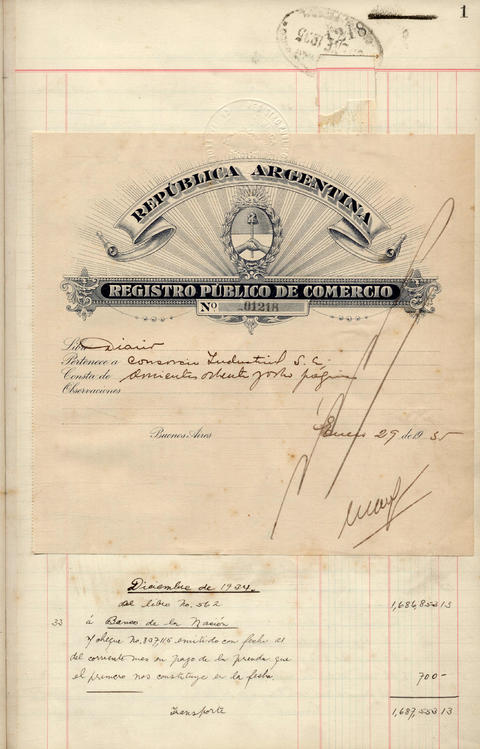 1
1218
REPÚBLICA ARGENTINA
REGISTRO PÚBLICO DE COMERCIO
Nº 01218
Libro Diario
Pertenece a Consorcio Industrial S. C.
Consta de ochenta y ocho páginas
Observaciones
Buenos Aires Enero 29 de 1935
Diciembre de 1934.
del libro No. 562 1,686,853 13
33 á Banco de la Nación
cheque No. emitido con fecha 21
del corriente mes en pago de la prenda que
el primero nos constituye en la fecha. 700-
Transporte 1,687,553 13